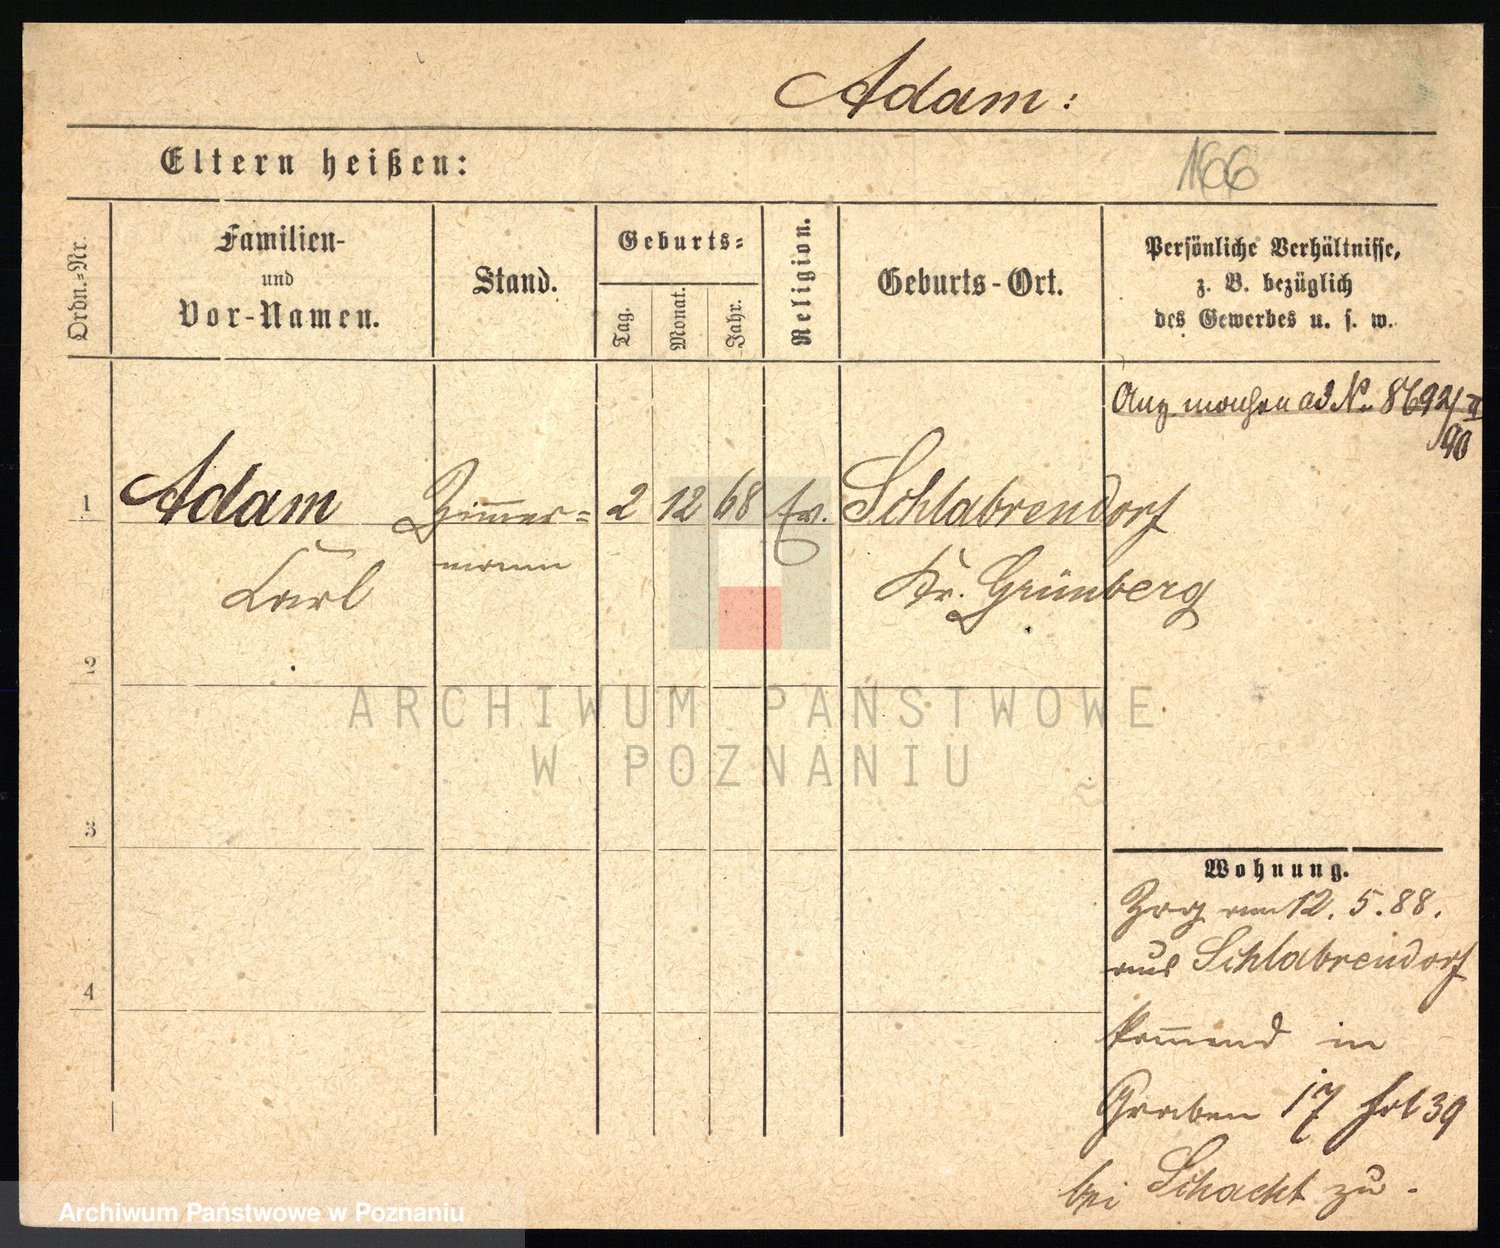 Adam:
Eltern heißen:
166
Ordn.-Nr.
Familien-
und
Vor-Namen.
Stand.
Geburts-
Tag.
Monat.
Jahr.
Religion.
Geburts-Ort.
Persönliche Verhältnisse,
z. B. bezüglich
des Gewerbes u. s. w.
ad No. 8692/
90
1 Adam Zim̅er= 2 12 68 Ev. Schlabrendorf
Carl mann Kr. Grünberg
2
3
4
Wohnung.
Zog am 12. 5. 88.
aus Schlabrendorf
kom̅end in
Graben 17
bei Schacht zu.
ARCHIWUM PAŃSTWOWE
W POZNANIU
Archiwum Państwowe w Poznaniu